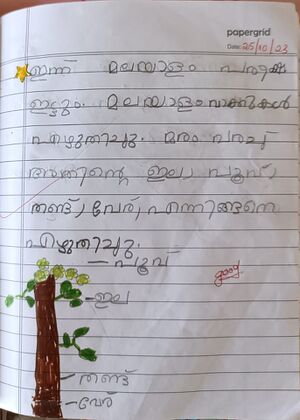 papergrid
Date: 25/10/23
ഇന്ന് മലയാളം പരീക്ഷ
ഇട്ടും. മലയാളം വാക്കുകൾ
എഴുതിച്ചു. മരം വരച്ച്
അതിന്റെ ഇല, പൂവ്,
തണ്ട്, വേര്, എന്നിങ്ങനെ
എഴുതിച്ചു.
പൂവ്
good
ഇല
തണ്ട്
വേര്